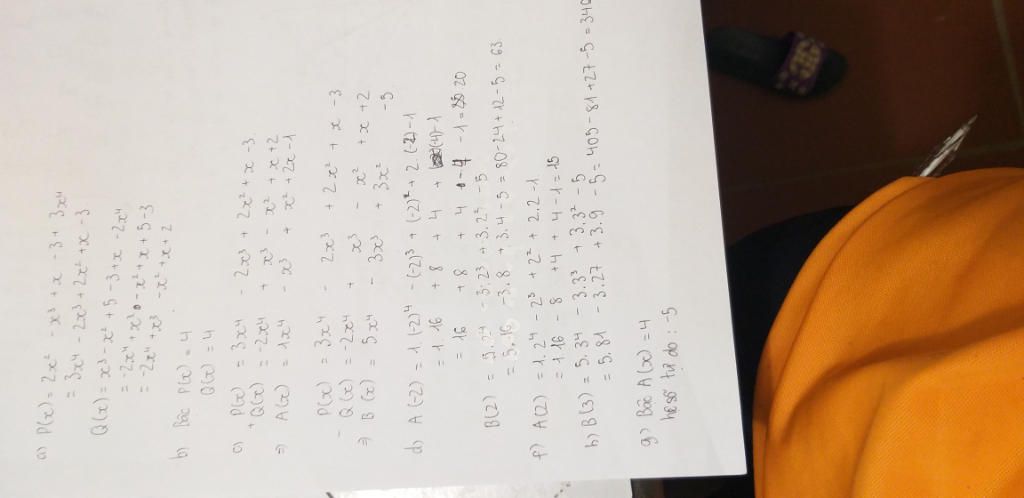 a) P(x) = 2x² - x³ + x - 3 + 3x⁴
= 3x⁴ - 2x³ + 2x² + x - 3
Q(x) = x³ - x² + 5 - 3 + x - 2x⁴
= -2x⁴ + x³ - x² + x + 5 - 3
= -2x⁴ + x³ - x² + x + 2
b) Bậc P(x) = 4
Q(x) = 4
c) P(x) = 3x⁴ - 2x³ + 2x² + x - 3
+ Q(x) = -2x⁴ + x³ - x² + x + 2
⇒ A(x) = 1x⁴ - x³ + x² + 2x - 1
- P(x) = 3x⁴ - 2x³ + 2x² + x - 3
Q(x) = -2x⁴ + x³ - x² + x + 2
⇒ B(x) = 5x⁴ - 3x³ + 3x² - 5
d) A(-2) = 1.(-2)⁴ - (-2)³ + (-2)² + 2.(-2) - 1
= 1.16 + 8 + 4 + (-4) - 1
= 16 + 8 + 4 - 4 - 1 = 20
B(2) = 5.2⁴ - 3.2³ + 3.2² - 5
= 5.16 - 3.8 + 3.4 - 5 = 80 - 24 + 12 - 5 = 63
f) A(2) = 1.2⁴ - 2³ + 2² + 2.2 - 1
= 1.16 - 8 + 4 + 4 - 1 = 15
h) B(3) = 5.3⁴ - 3.3³ + 3.3² - 5
= 5.81 - 3.27 + 3.9 - 5 = 405 - 81 + 27 - 5 = 346
g) Bậc A(x) = 4
hệ số tự do : -5